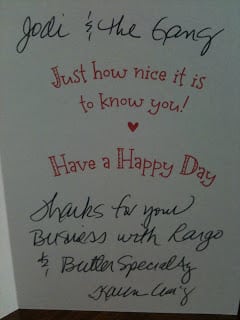 Jodi & the Gang
Just how nice it is
to know you!
Have a Happy Day
Thanks for your
Business with Rargo
& Butler Specialty
Karen